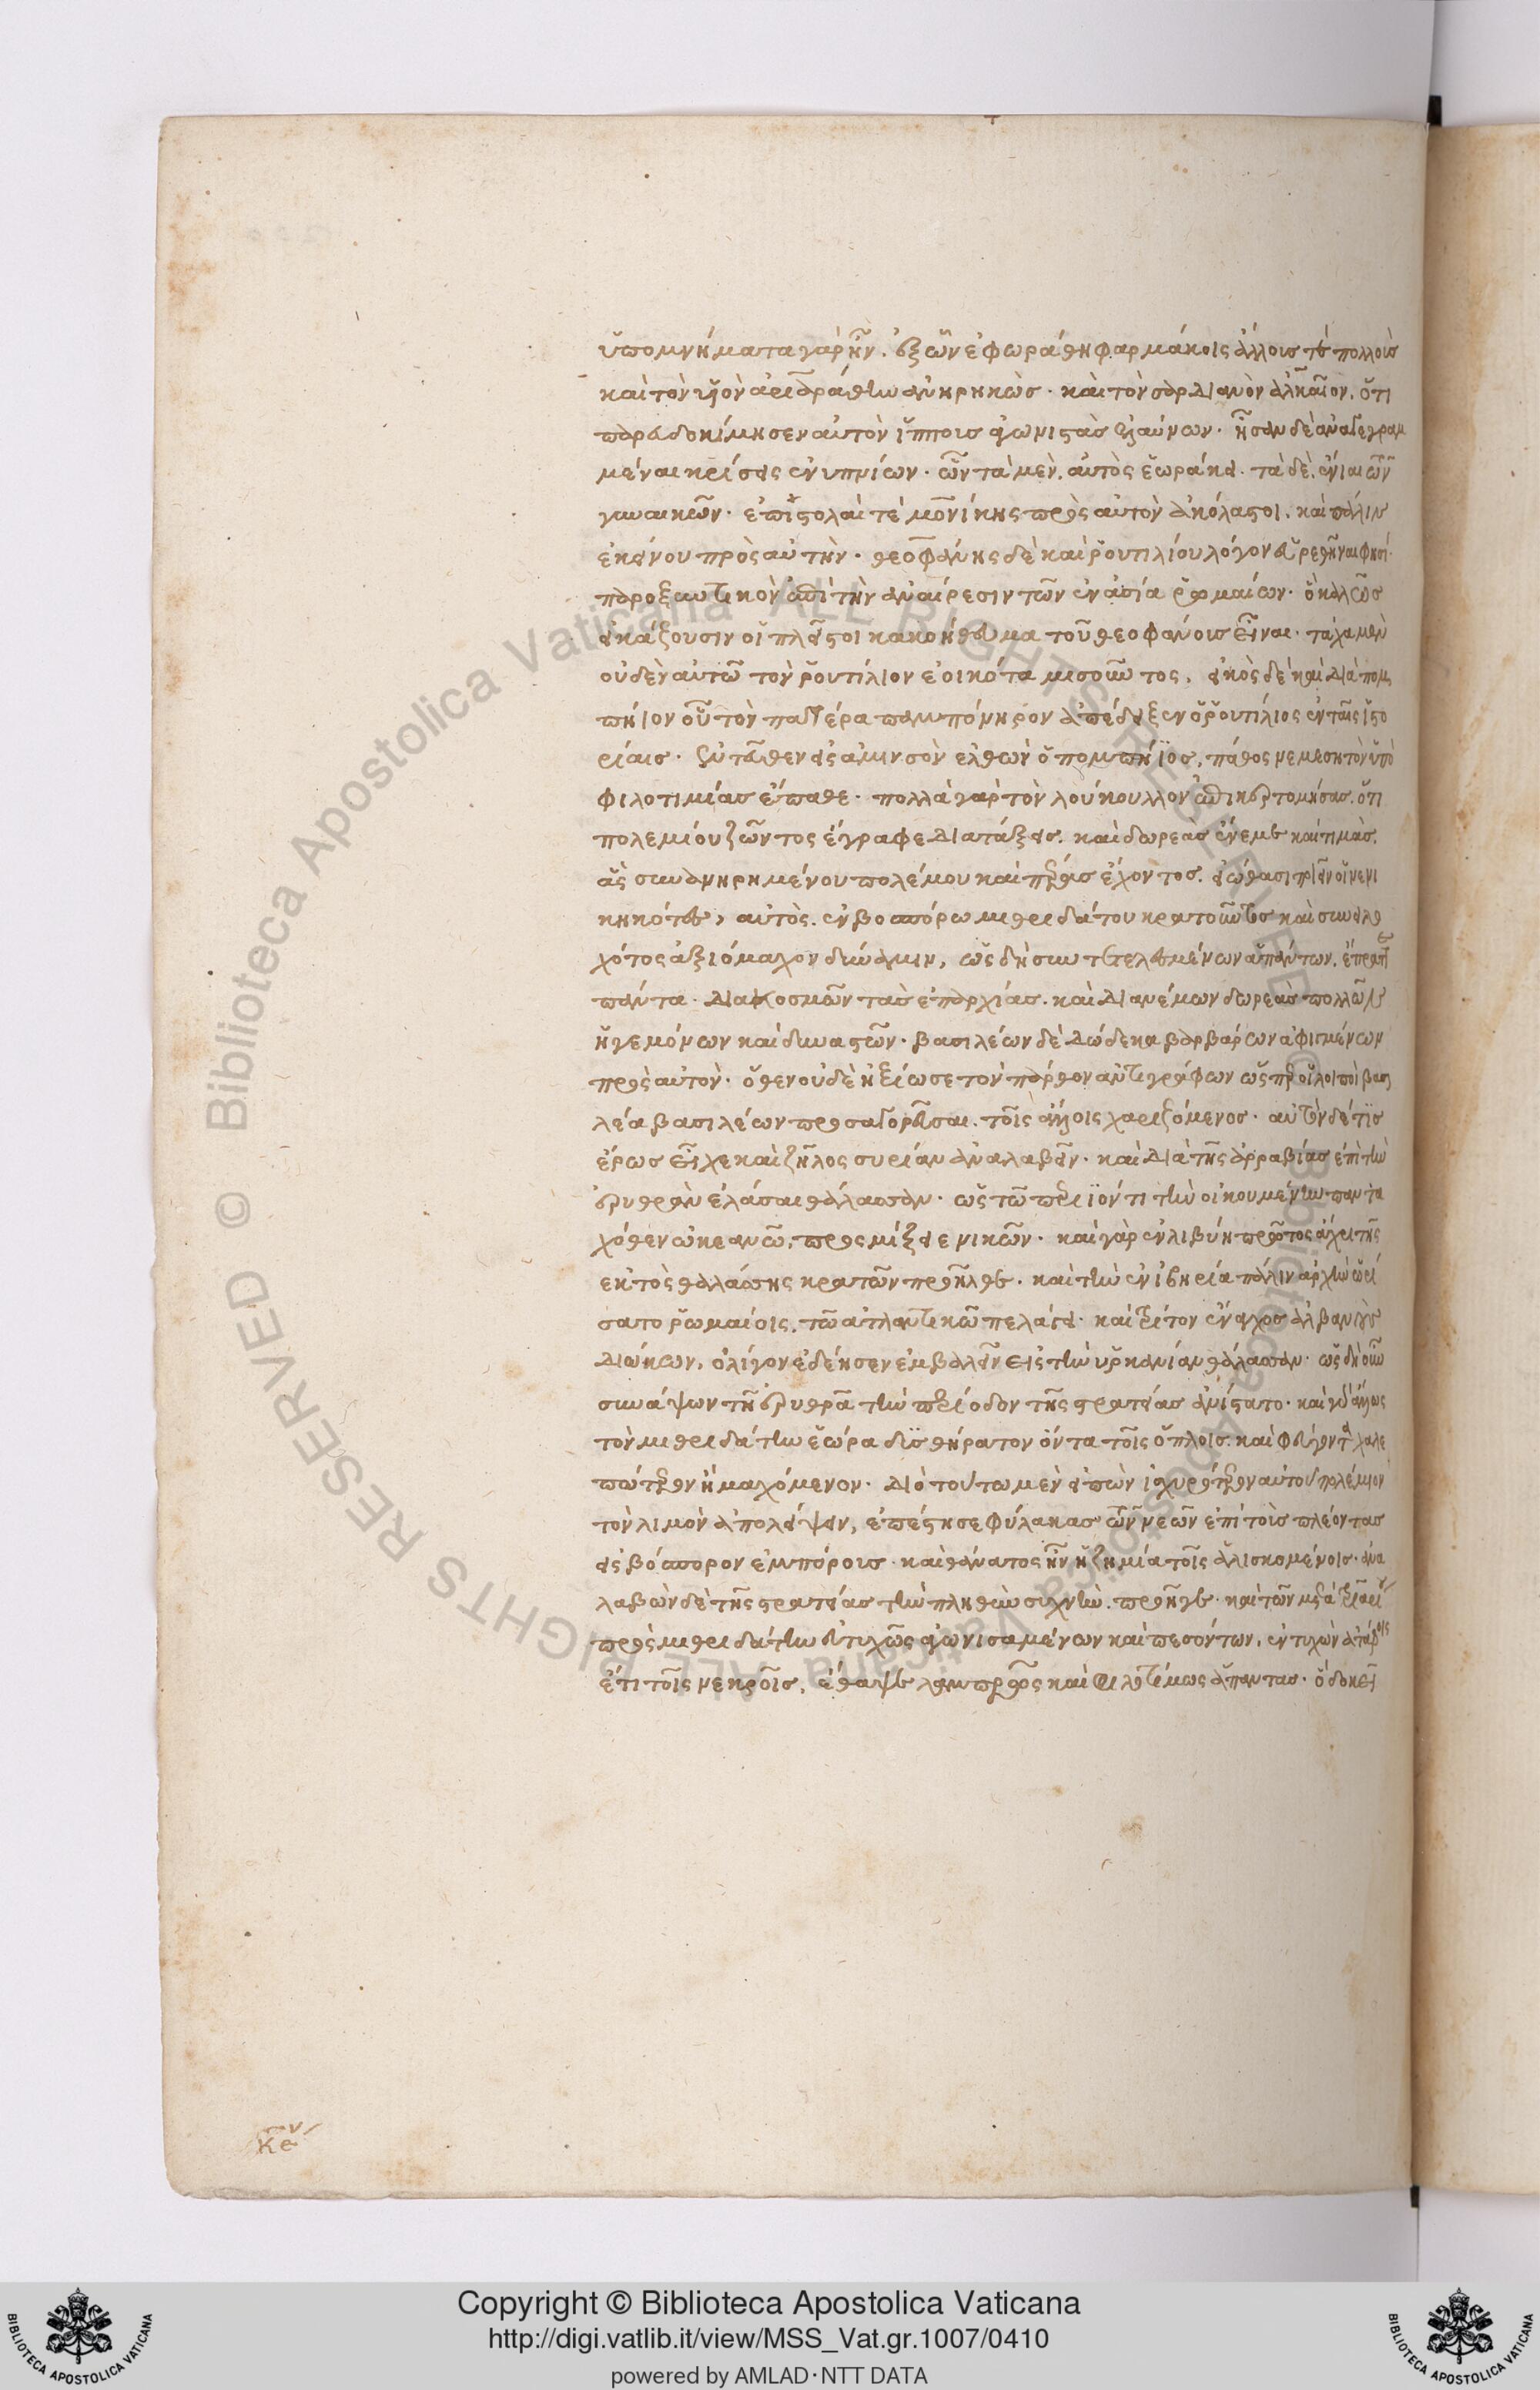 ὑπομνήματα γὰρ ἦν. ἐξ ὧν ἐφωράθη φαρμάκοις ἄλλους τε πολλοὺς
καὶ τὸν υἱὸν ἀριαράθην ἀνηρηκὼς. καὶ τὸν σαρδιανὸν ἀλκαῖον. ὅτι
παρευδοκίμησεν αὐτὸν ἵπποις ἀγωνιστὰς ἐλαύνων. ἦσαν δὲ ἀναγεγραμ
μέναι κρίσεις ἐνυπνίων. ὧν τὰ μὲν. αὐτὸς ἑωράκει. τὰ δὲ. ἔνιαι τῶν
γυναικῶν. ἐπιστολαί τε μονίμης πρὸς αὐτὸν ἀκόλαστοι. καὶ πάλιν
ἐκείνου πρὸς αὐτὴν. θεοφάνης δὲ καὶ ῥουτιλίου λόγον εὑρεθῆναι φησί.
παροξυντικὸν ἐπὶ τὴν ἀναίρεσιν τῶν ἐν ἀσία ῥωμαίων. ὃ καλῶς
εἰκάζουσιν οἱ πλεῖστοι κακοήθευμα τοῦ θεοφάνους εἶναι. τάχα μὲν
οὐδὲν αὐτῶ τὸν ῥουτίλιον ἐοικότα μισοῦντος, εἰκὸς δὲ καὶ διὰ πομ
πήιον οὗ τὸν πατέρα παμπόνηρον ἀπέδειξεν ὁ ῥουτίλιος ἐν ταῖς ἱστο
ρίαις. ἐντεῦθεν εἰς ἀμινσὸν ἐλθὼν ὁ πομπήϊος, πάθος νεμεσητὸν ὑπὸ
φιλοτιμίας ἔπαθε. πολλὰ γὰρ τὸν λούκουλλον ἐπικερτομήσας. ὅτι
πολεμίου ζῶντος ἔγραφε διατάξεις. καὶ δωρεὰς ἔνεμε καὶ τιμὰς.
ἃς συνῃρημένου πολέμου καὶ πέρας ἔχοντος. εἰώθασι ποιεῖν οἱ νενι
κηκότες, αὐτὸς. ἐν βοσπόρω μιθριδάτου κρατοῦντος καὶ συνειλο
χότος ἀξιόμαχον δύναμιν, ὡς δὴ συντετελεσμένων ἁπάντων. ἔπραττε
πάντα. διακοσμῶν τὰς ἐπαρχίας. καὶ διανέμων δωρεὰς πολλῶν
ἡγεμόνων καὶ δυναστῶν. βασιλέων δὲ δώδεκα βαρβάρων ἀφιγμένων
πρὸς αὐτὸν. ὅθεν οὐδὲ ἠξίωσε τὸν πάρθον ἀντιγράφων ὥσπερ οἱ λοιποὶ βασι
λέα βασιλέων προσαγορεῦσαι. τοῖς ἄλλοις χαριζόμενος. αὐτὸν δέ τις
ἔρως εἶχε καὶ ζῆλος συρίαν ἀναλαβεῖν. καὶ διὰ τῆς ἀρραβίας ἐπὶ τὴν
ἐρυθρὰν ἐλάσαι θάλασσαν. ὡς τῶ περιϊόντι τὴν οἰκουμένην πανταχόθεν
χόθεν ὠκεανῶ. προσμίξειε νικῶν. καὶ γὰρ ἐν λιβύη πρῶτος ἄχρι τῆς
ἐκτὸς θαλάσσης κρατῶν προῆλθε. καὶ τὴν ἐν ἰβηρία πάλιν ἀρχὴν ὡρί
σατο ῥωμαίοις. τῶ ἀτλαντικῶ πελάγει. καὶ τρίτον ἔναγχος ἀλβανοὺς
διώκων, ὀλίγον ἐδέησεν ἐμβαλεῖν εἰς τὴν ὑρκανίαν θάλασσαν. ὡς δὴ οὖν
συνάψων τῆ ἐρυθρᾶ τὴν περίοδον τῆς στρατείας ἀνίστατο. καὶ γὰρ ἄλλως
τὸν μιθριδάτην ἑώρα δυσθήρατον ὄντα τοῖς ὅπλοις. καὶ φεύγοντα χαλε
πώτερον ἢ μαχόμενον. διὸ τούτω μὲν εἰπὼν ἰσχυρότερον αὑτοῦ πολέμιον
τὸν λιμὸν ἀπολείψειν, ἐπέστησε φύλακας τῶν νεῶν ἐπὶ τοὺς πλέοντας
εἰς βόσπορον ἐμπόρους. καὶ θάνατος ἦν ἡ ζημία τοῖς ἁλισκομένοις. ἀνα
λαβὼν δὲ τῆς στρατείας τὴν πληθὺν συχνὴν. προῆγε. καὶ τῶν μετὰ τριαρίου
πρὸς μιθριδάτην ἀτυχῶς ἀγωνισαμένων καὶ πεσόντων. ἐντυχὼν ἀτάφοις
ἔτι τοῖς νεκροῖς. ἔθαψε λαμπρῶς καὶ φιλοτίμως ἅπαντας. ὃ δοκεῖ
Copyright © Biblioteca Apostolica Vaticana
http://digi.vatlib.it/view/MSS_Vat.gr.1007/0410
powered by AMLAD·NTT DATA